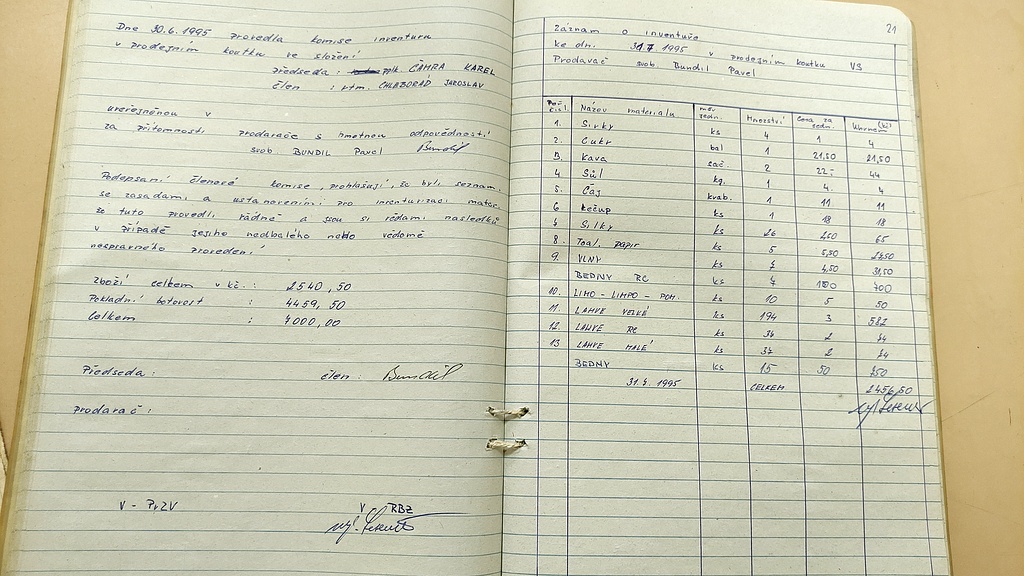 Dne 30.6.1995 provedla komise inventuru
v prodejním koutku ve složení
předseda : pplk. ČAMRA KAREL
člen : rtm. CHLABORÁD JAROSLAV
uveřejněnou v
za přítomnosti prodavače s hmotnou odpovědností
svob. BUNDIL Pavel Bundil
Podepsaní členové komise, prohlašují, že byli seznam.
se zasadami a ustanovením pro inventurizaci
že tuto provedli řádně a jsou si vědomi následků
v případě jejího nedbalého nebo vědomě
nesprávného provedení
Zboží celkem v kč. : 2540,50
Pokladní hotovost : 4459,50
Celkem : 7000,00
Předseda : člen : Bundil
Prodavač :
V - PvZV V RBZ
21
Záznam o inventuře
ke dni. 31.7 1995 v prodejním koutku VS
Prodavač svob. Bundil Pavel
Poř. čísl. Název materialu měr. jedn. Množství Cena za jedn. (kč)
1. Sirky ks 4 1 4
2. Cukr bal 1 21,50 21,50
3. Kava sáč. 2 22,- 44
4 Sůl kg. 1 4. 4
5. Čaj krab. 1 11 11
6 Kečup ks 1 18 18
7 Silky ks 26 2,50 65
8. Toal. papír ks 5 5,30
9. VLNY ks 7 4,50 31,50
BEDNY RC ks 7 100 700
10. LIMO - LIMPO - POM. ks 10 5 50
11. LAHVE VELKÉ ks 194 3 582
12. LAHVE RC ks 2 74
13 LAHVE MALÉ ks 37 2 74
BEDNY ks 15 50 750
31.7 1995 CELKEM 2456,50